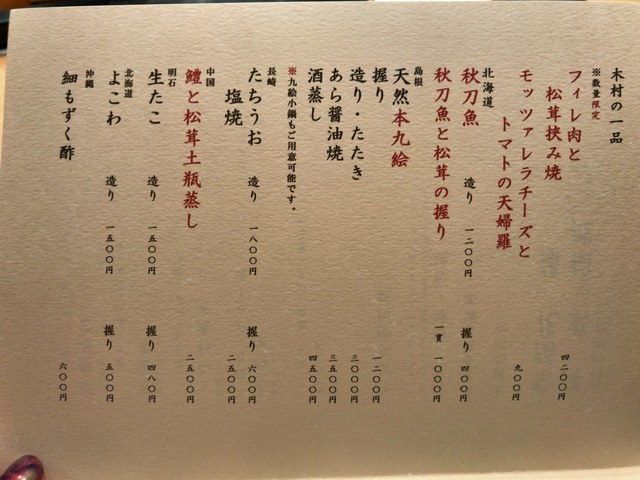 木村の一品
※数量限定
フィレ肉と
松茸挟み焼 四二〇〇円
モッツァレラチーズと
トマトの天婦羅 九〇〇円
北海道
秋刀魚 造り 一二〇〇円 握り 四〇〇円
秋刀魚と松茸の握り 一貫 一〇〇〇円
島根
天然本九絵
握り 一二〇〇円
造り・たたき 三〇〇〇円
あら醤油焼 三五〇〇円
酒蒸し 四五〇〇円
※九絵小鍋もご用意可能です。
長崎
たちうお 造り 一八〇〇円 握り 六〇〇円
塩焼 二五〇〇円
中国
鱧と松茸土瓶蒸し 二五〇〇円
明石
生たこ 造り 一五〇〇円 握り 四八〇円
北海道
よこわ 造り 一五〇〇円 握り 五〇〇円
沖縄
細もずく酢 六〇〇円